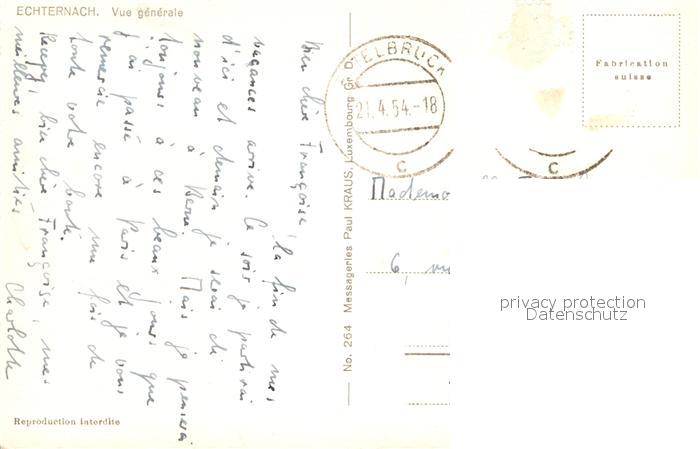 ECHTERNACH. Vue générale
Ma chère Françoise,
la fin de mes
vacances arrive. Ce soir je partirai
d'ici et demain je serai de
nouveau à Berne. Mais je penserai
toujours à ces beaux jours que
j'ai passé à Paris et je vous
remercie encore une fois de
toute votre bonté.
Recevez, bien chère Françoise, mes
meilleures amitiés
Charlotte
Reproduction interdite
No. 264 Messageries Paul KRAUS, Luxembourg Gr.
ETTELBRUCK
21.4.54.-18
C
C
Fabrication
suisse
Mademo
6,
privacy protection
Datenschutz